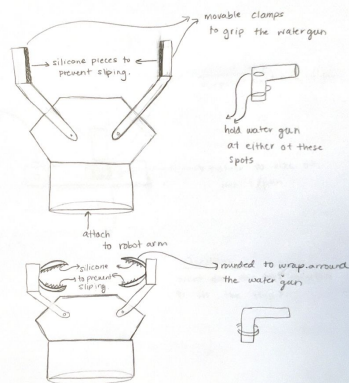 movable clamps
to grip the watergun
silicone pieces to
prevent sliping.
hold water gun
at either of these
spots
attach
to robot arm
silicone
to prevent
sliping.
rounded to wrap arround
the water gun